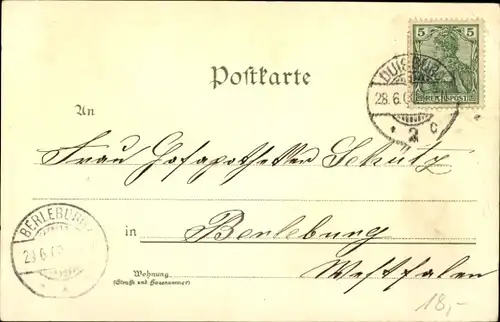 5 5
REICHSPOST
DUISBURG
28.6.0
* 2 c
Postkarte
An
Frau Hofapotheker Schütz
BERLEBURG
29.6.0
in Berleburg
Westfalen
Wohnung
(Straße und Hausnummer)
18,-